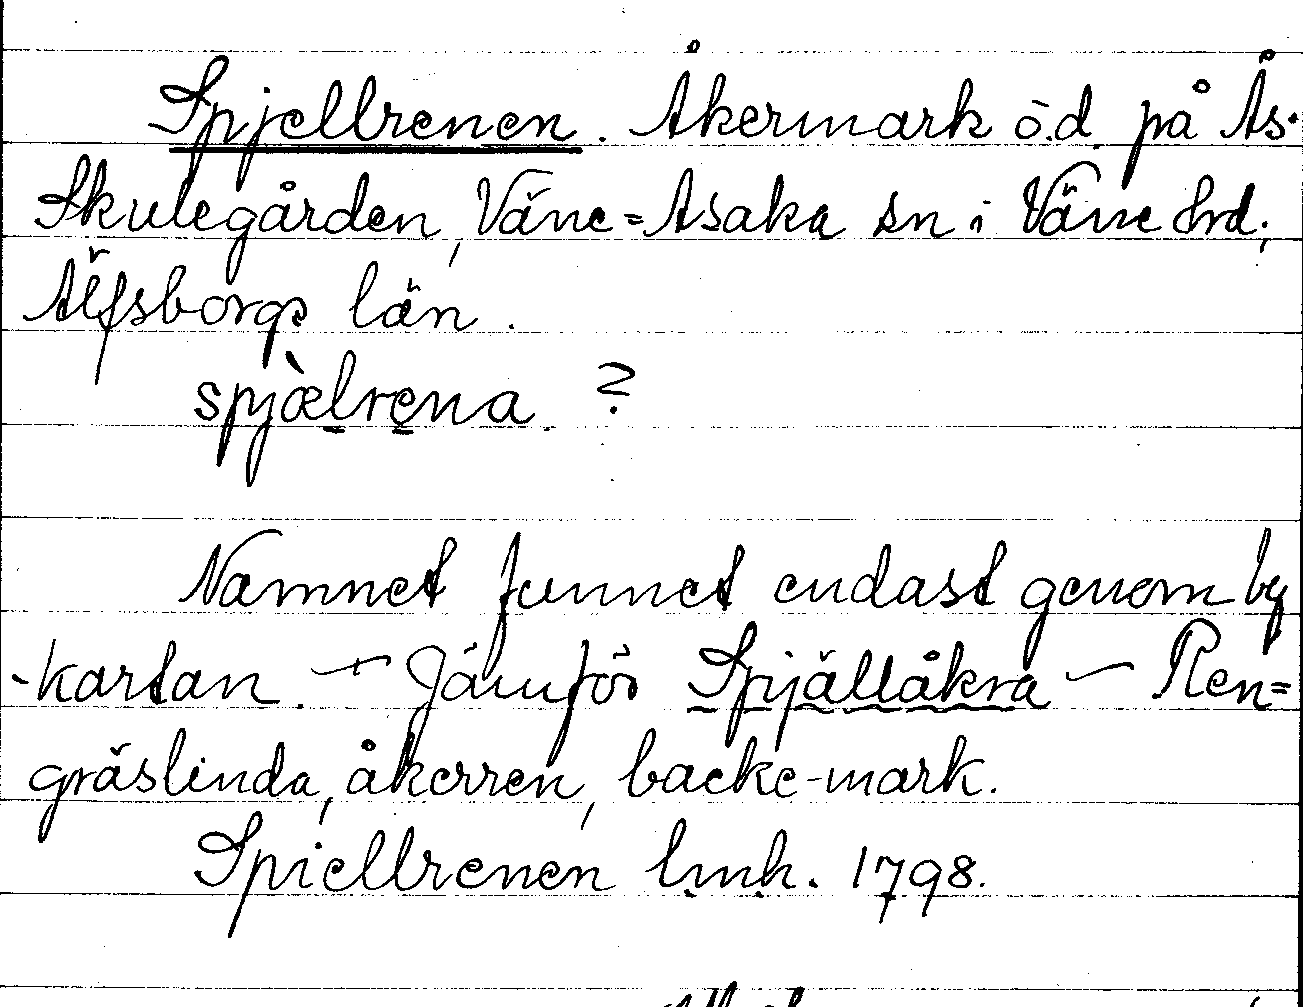 Spjellrenen. Åkermark ö.d. på Ås.
Skulegården, Väne=Åsaka sn i Väne hrd,
Älfsborgs län.
spjælrena. ?
Namnet funnet endast genom by
-kartan. — Jämför Spjällåkra — Ren=
gräslinda, åkerren, backe-mark.
Spiellrenen lmh. 1798.